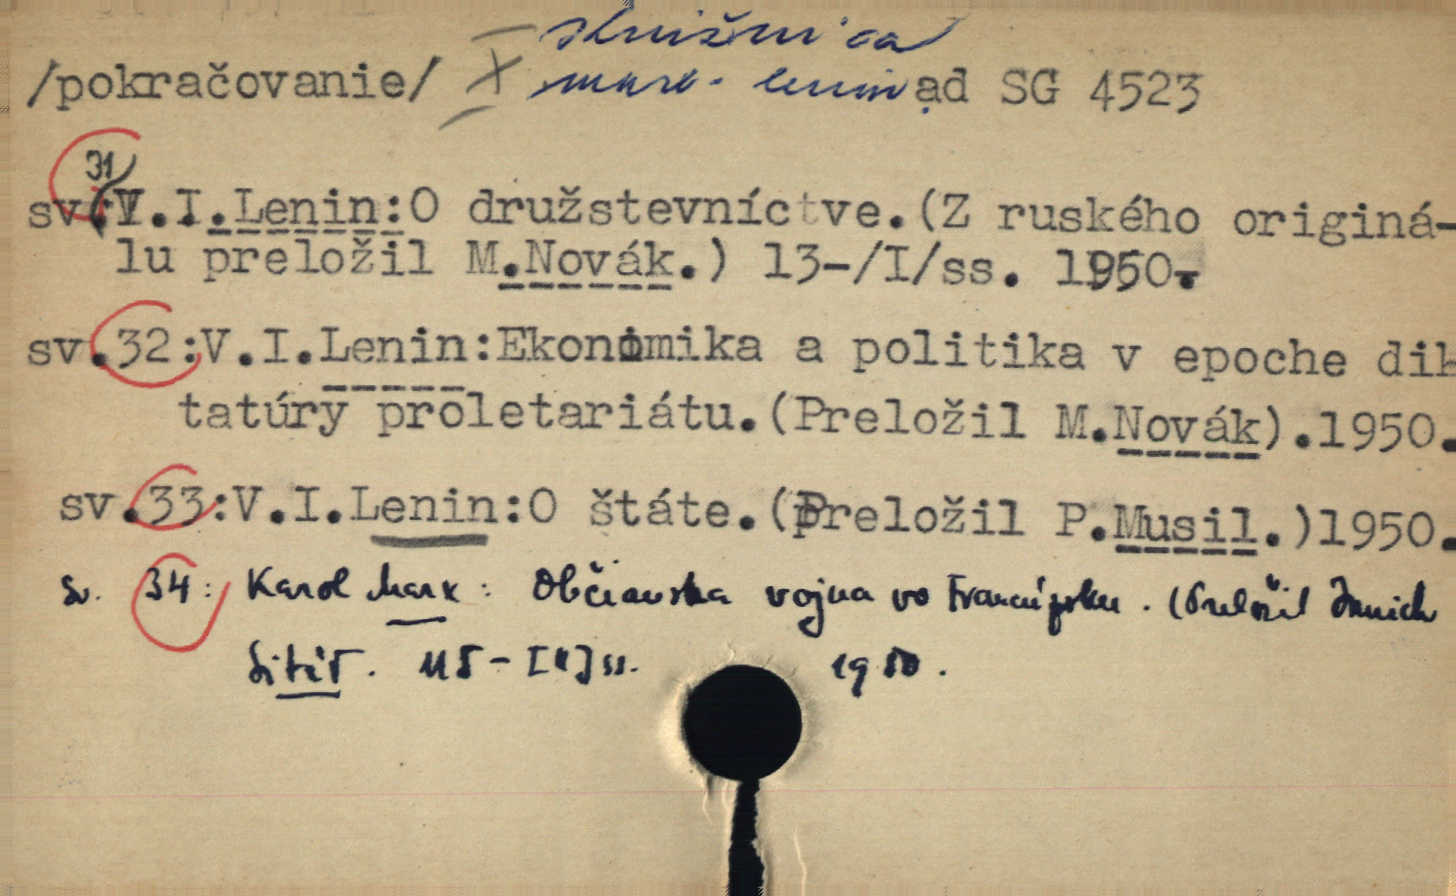 knižnica
/pokračovanie/ X marx-lenin ad SG 4523
31
sv.:V.I.Lenin:O družstevníctve.(Z ruského originá-
lu preložil M.Novák.) 13-/I/ss. 1950.
sv.32:V.I.Lenin:Ekonomika a politika v epoche dik
tatúry proletariátu.(Preložil M.Novák).1950.
sv.33:V.I.Lenin:O štáte.(Preložil P.Musil.)1950.
sv. 34: Karol Marx: Občianska vojna vo Francúzsku. (Preložil
115-[II]ss. 1950.